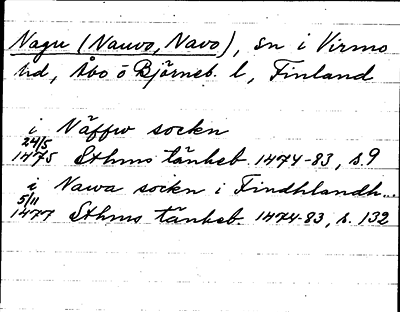 Nagu (Nauvo, Navo), sn i Virmo
hd, Åbo o Björneb. l, Finland
i Näffw sockn
24/5
1475 Sthms tänkeb. 1474-83, s. 9
i Nawa sockn i Findhlandh...
5/11
1477 Sthms tänkeb. 1474-83, s. 132